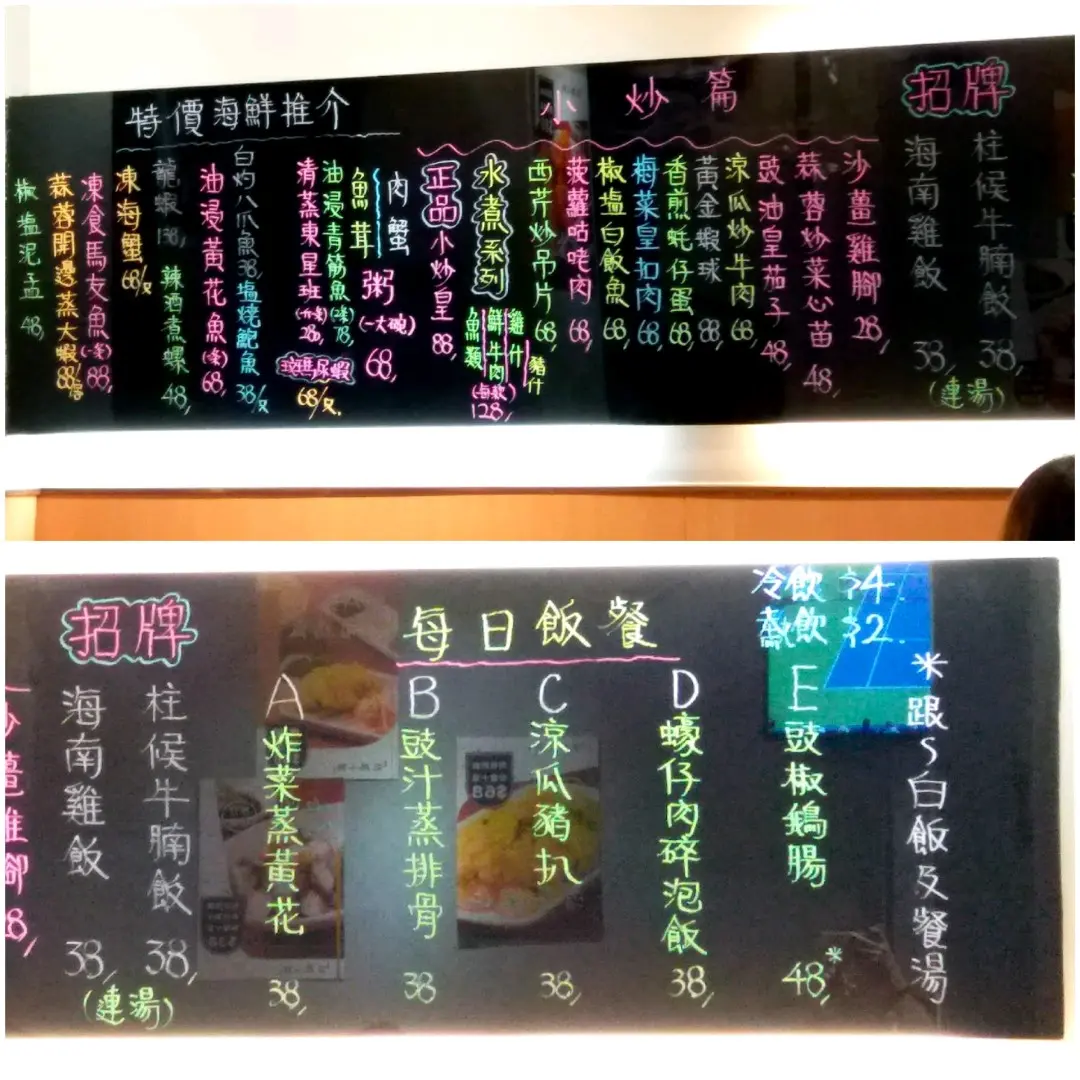 招牌
柱候牛腩飯 38,
海南雞飯 38,
(連湯)
小炒篇
沙薑雞腳 28,
蒜蓉炒菜心苗 48,
豉油皇茄子 48,
涼瓜炒牛肉 68,
黃金蝦球 88,
香煎蚝仔蛋 68,
梅菜皇扣肉 68,
椒塩白飯魚 68,
菠蘿咕咾肉 68,
西芹炒吊片 68,
水煮系列
雞什
豬什
鮮牛肉
魚類
(每款)
128,
正品小炒皇 88,
特價海鮮推介
肉蟹
魚茸
粥
(一大碗)
68,
油浸青筋魚(2条) 78,
清蒸東星班(一条) 28
瀨尿蝦
68/隻.
白灼八爪魚 38,
塩燒鮑魚 38/隻
油浸黃花魚(条) 68,
龍蝦 138,
辣酒煮螺 48,
凍海蟹 68/隻
凍食馬友魚(一条) 88,
蒜蓉開邊蒸大蝦 88/
椒塩泥孟 48,
冷飲 $4.
熱飲 $2.
*跟S白飯及餐湯
每日飯餐
A 炸菜蒸黃花 38,
B 豉汁蒸排骨 38
C 涼瓜豬扒 38,
D 蠔仔肉碎泡飯 38,
E 豉椒鵝腸 48,*
招牌
柱候牛腩飯 38,
海南雞飯 38,
(連湯)
沙薑雞腳 28,